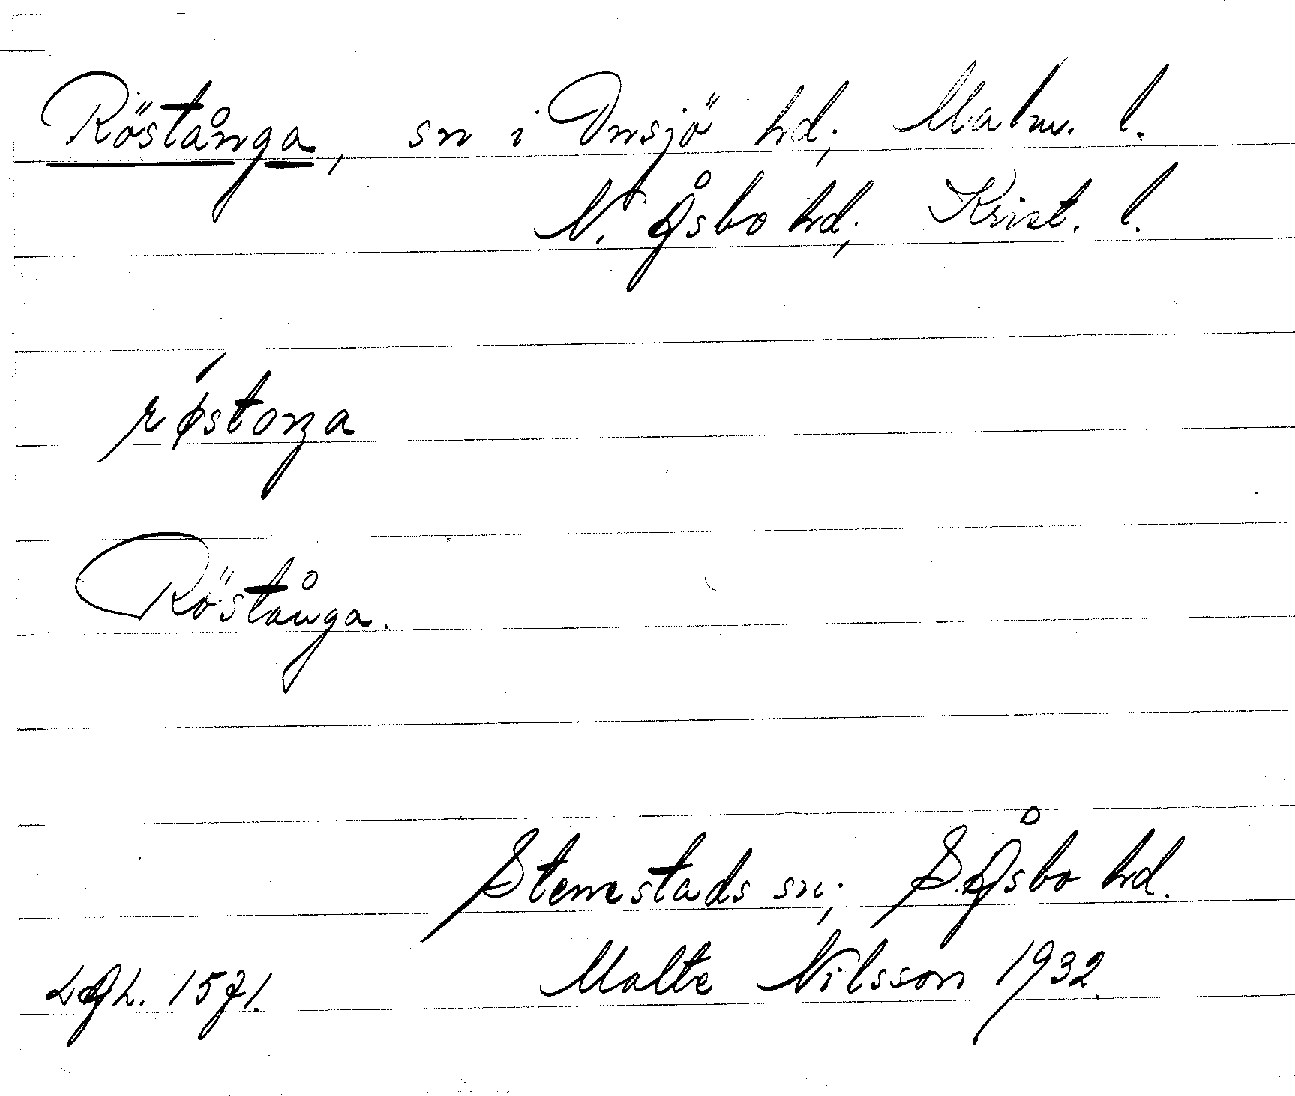 Röstånga, sn i Onsjö hd; Malm. l.
N. Åsbo hd; Krist. l.
røstoŋa
Röstånga.
Stenestads sn; S. Åsbo hd.
Malte Nilsson 1932.
LAL. 1571.